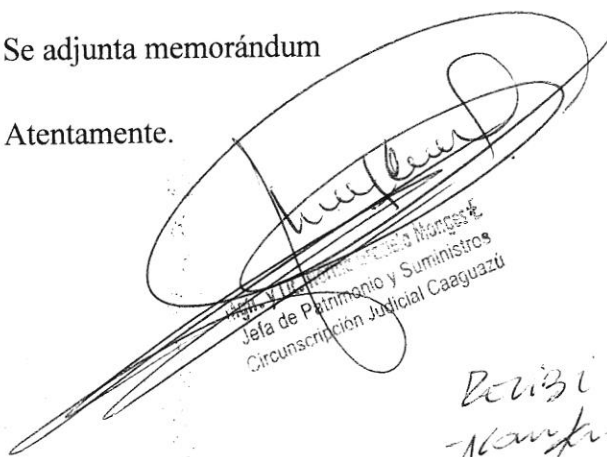 Se adjunta memorándum
Atentamente.
Monges E
Jefa de Patrimonio y Suministros
Circunscripción Judicial Caaguazú